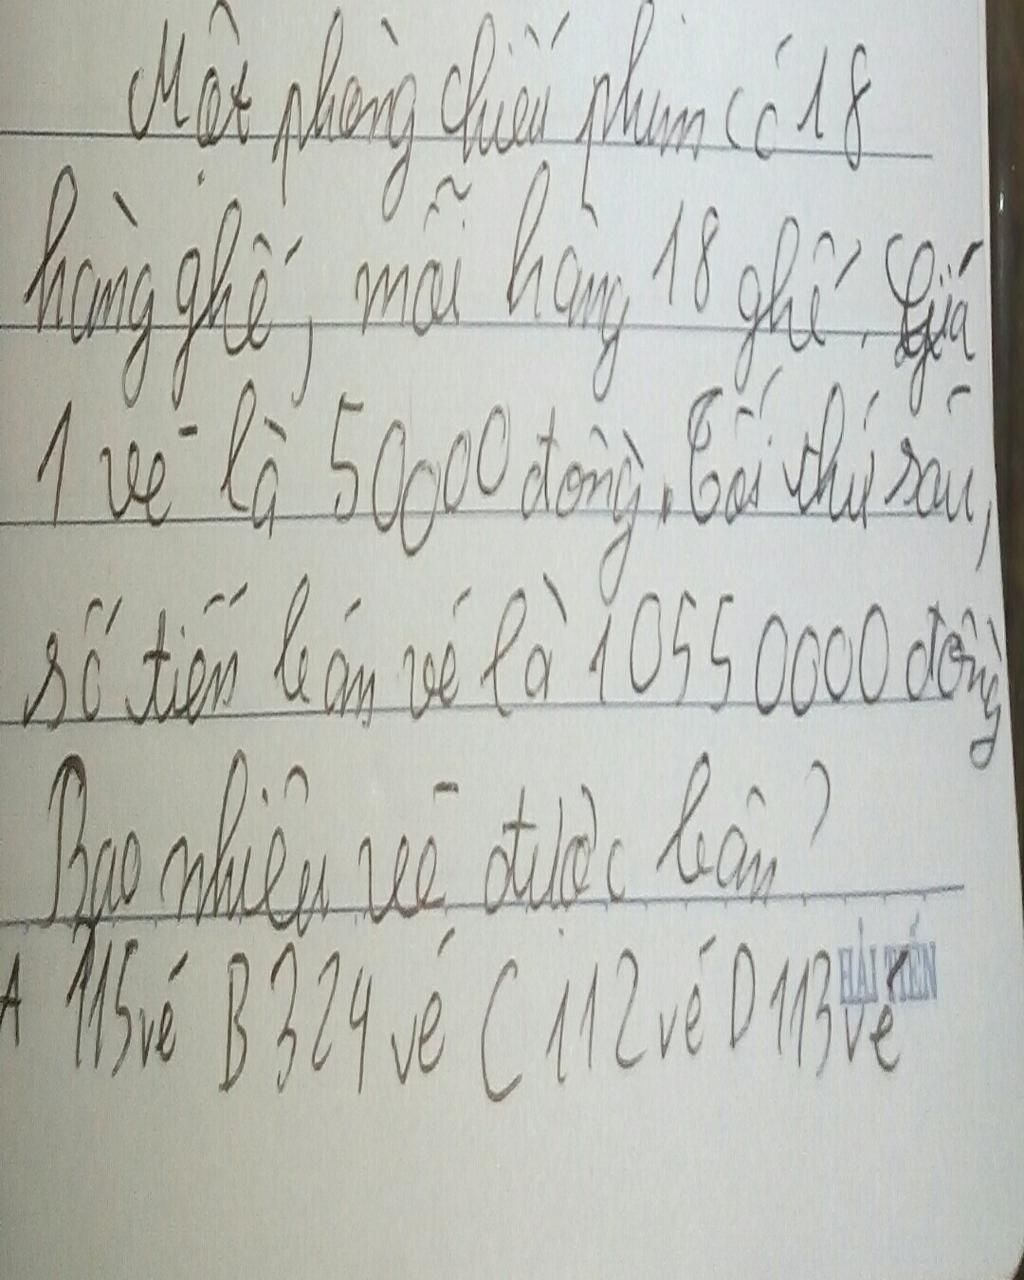 Một phòng chiếu phim có 18
hàng ghế, mỗi hàng 18 ghế. Giá
1 vé là 50000 đồng. Tối thứ sáu,
số tiền bán vé là 10550000 đồng
Bao nhiêu vé được bán?
A 115 vé B 324 vé C 112 vé D 113 vé
HẢI TIẾN